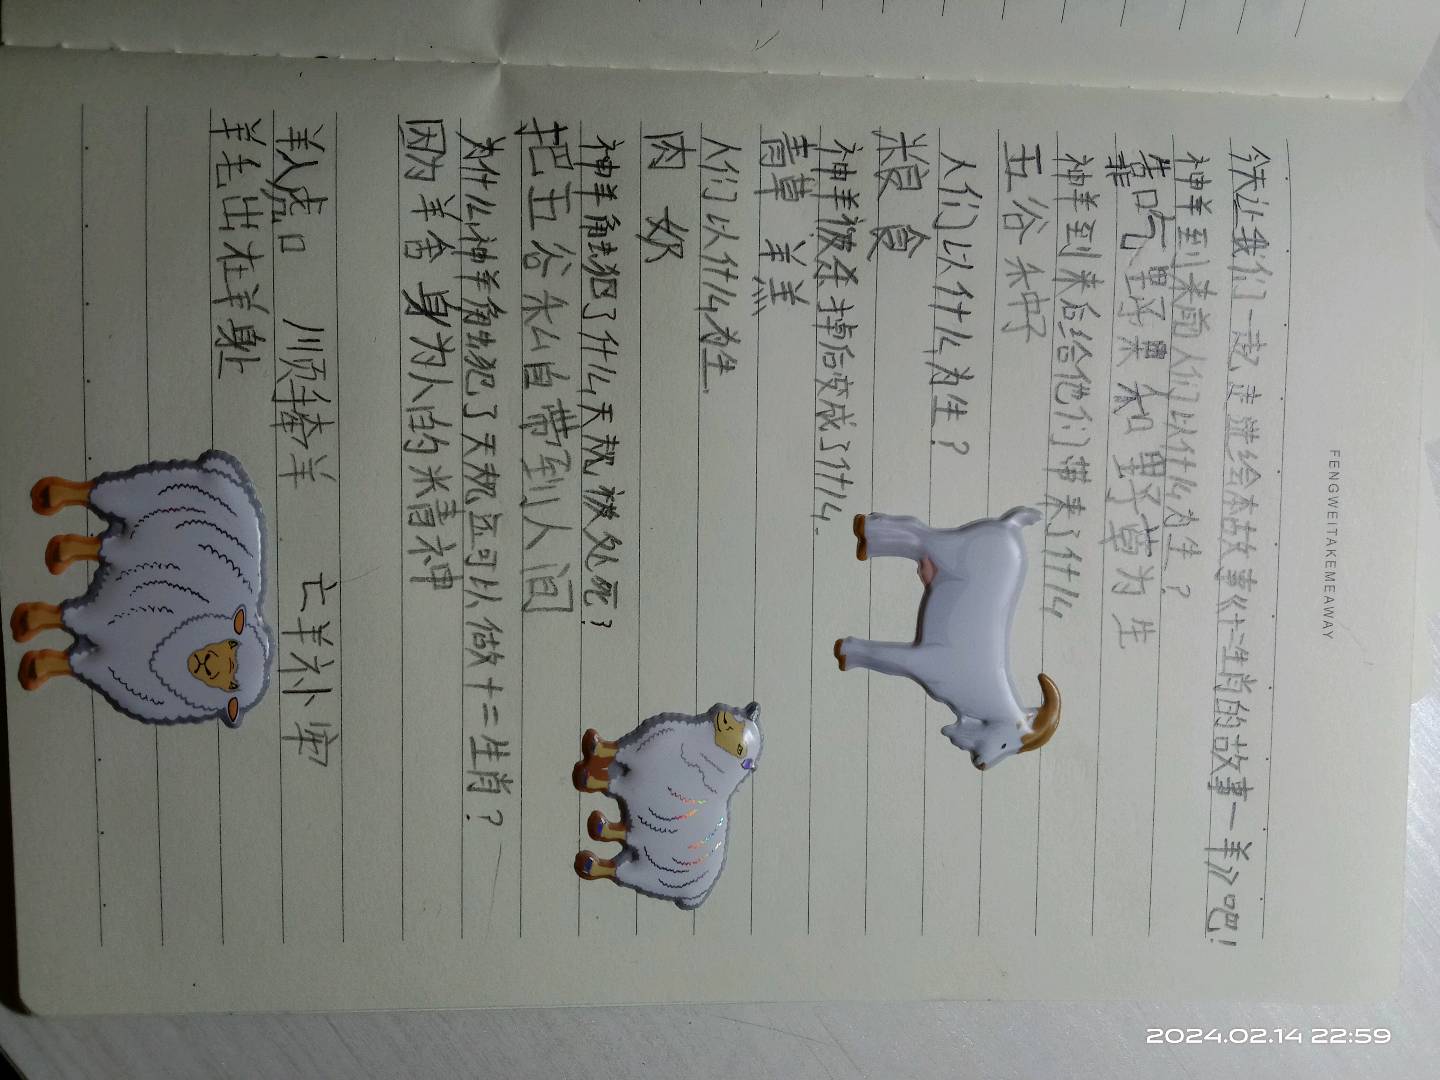 FENGWEITAKEMEAWAY
今天让我们一起走进绘本故事《十二生肖的故事一羊》吧!
神羊到来前人们以什么为生?
靠吃野果和野草为生
神羊到来后给他们带来了什么
五谷种子
人们以什么为生?
粮食
神羊被杀掉后变成了什么.
青草 羊羔
人们以什么为生.
肉 奶
神羊触犯了什么天规,被处死?
把五谷私自带到人间
为什么神羊触犯了天规还可以做十二生肖?
因为羊舍身为人的精神
羊入虎口 顺手牵羊 亡羊补牢
羊毛出在羊身上
2024.02.14 22:59